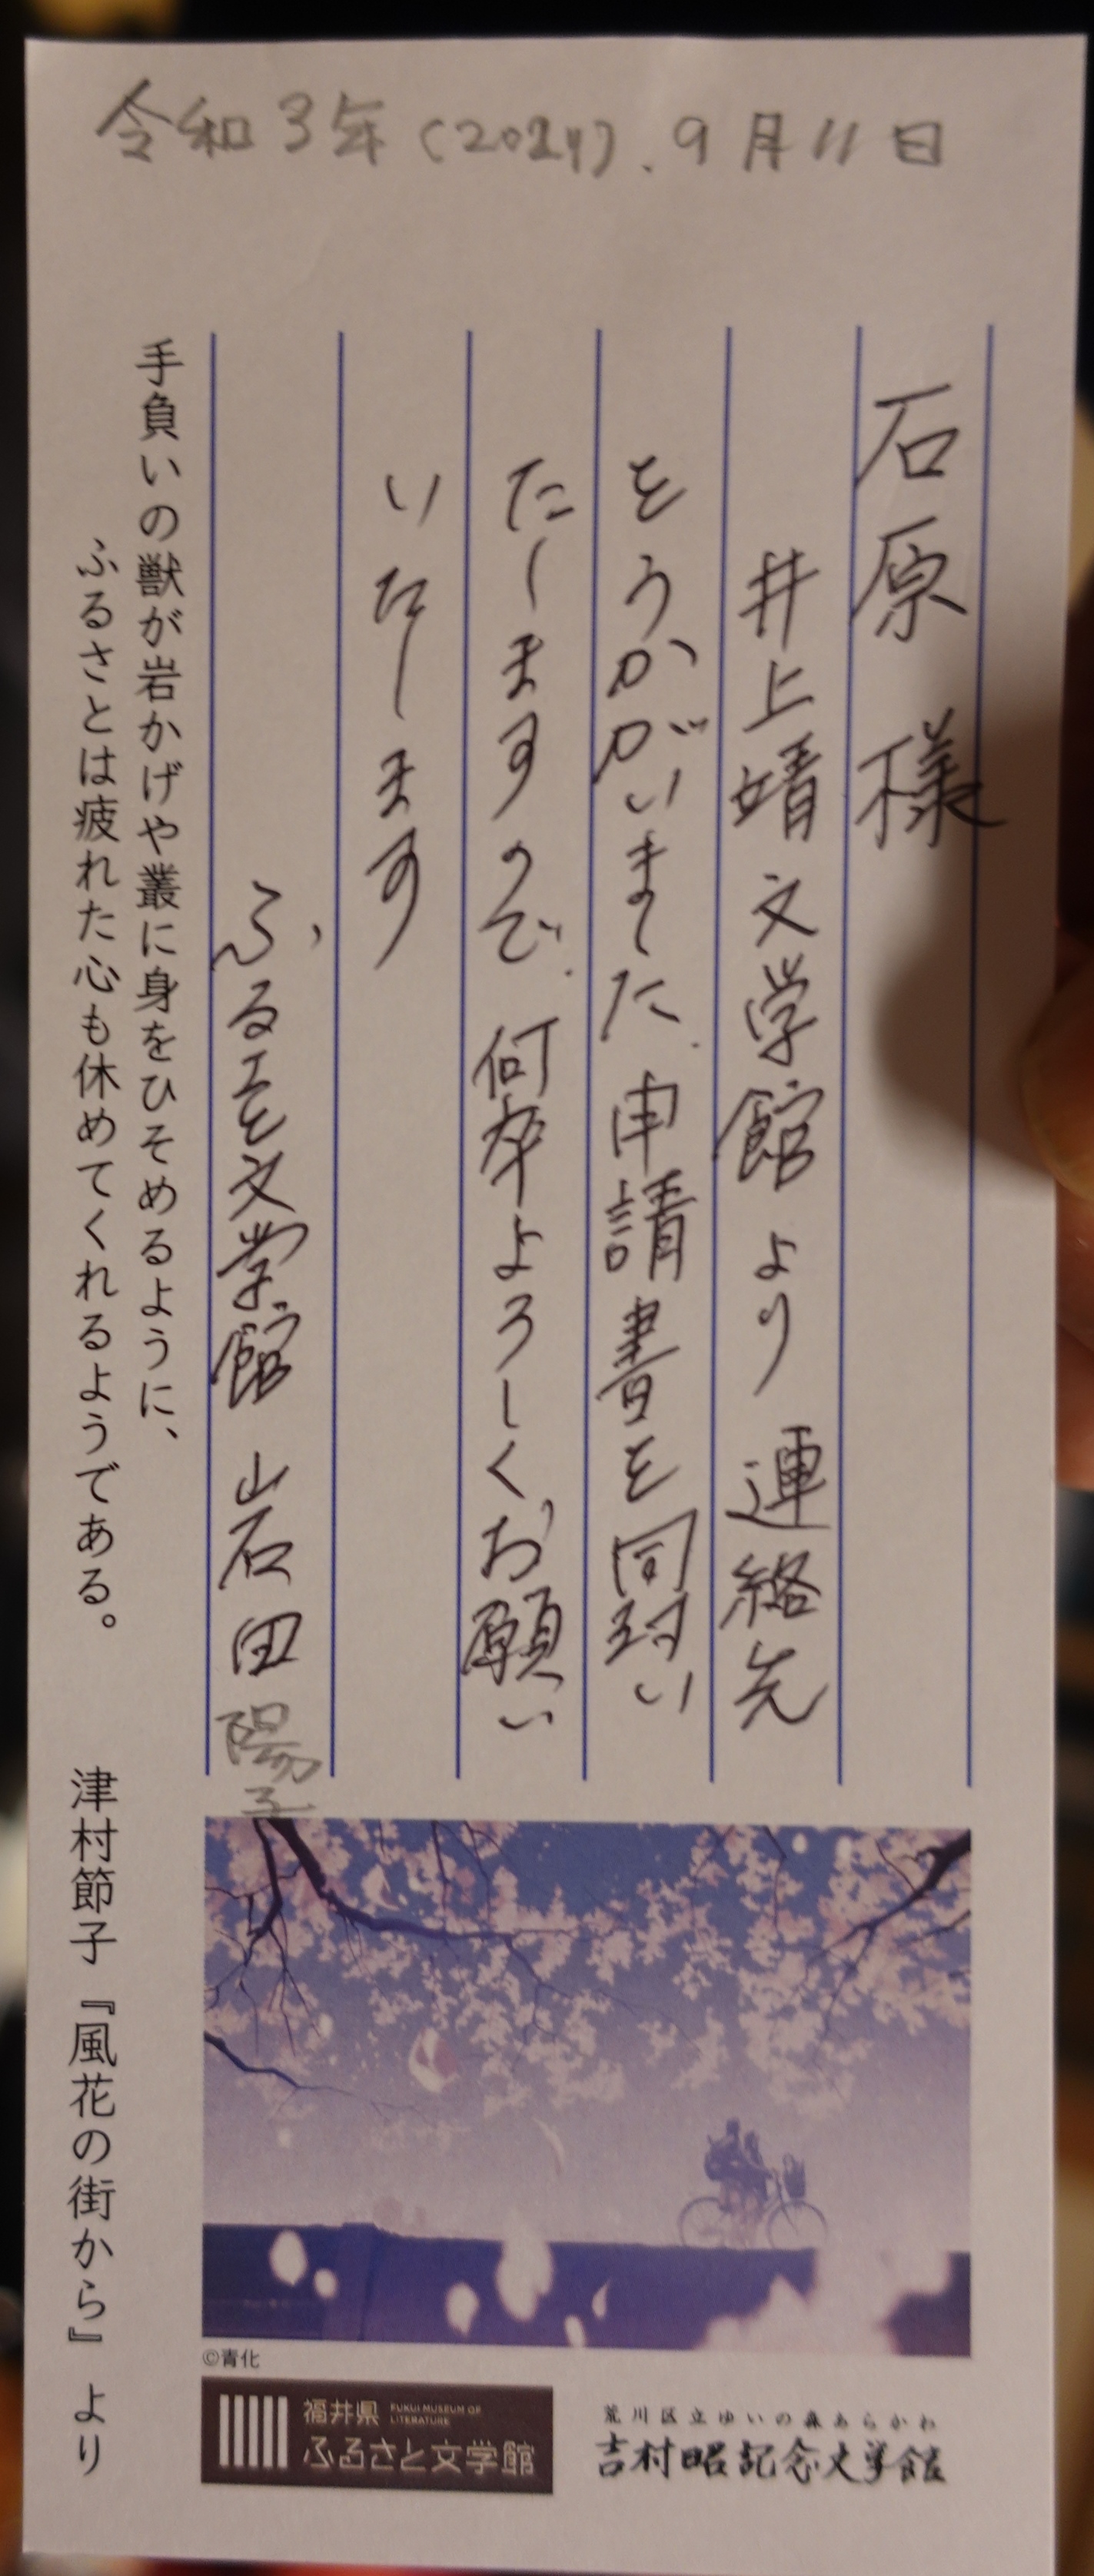 令和3年(2021).9月11日
石原 様
井上靖文学館より連絡先
をうかがいました.申請書を同封い
たしますので.何卒よろしくお願い
いたします
ふるさと文学館 岩田陽子
手負いの獣が岩かげや叢に身をひそめるように、
ふるさとは疲れた心も休めてくれるようである。
津村節子『風花の街から』より
©青化
福井県
FUKUI MUSEUM OF
LITERATURE
ふるさと文学館
荒川区立ゆいの森あらかわ
吉村昭記念文学館